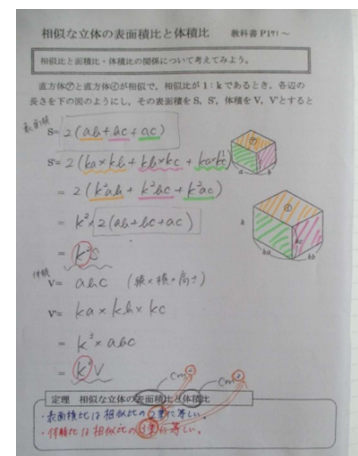 相似な立体の表面積比と体積比 教科書 P171～
相似比と表面積比・体積比の関係について考えてみよう。
直方体㋐と直方体㋑が相似で、相似比が1：kであるとき、各辺の
長さを下の図のようにし、その表面積をS, S'、体積をV, V'とすると
表面積
S= 2(ab+bc+ac)
S'= 2(ka×kb+kb×kc+ka×kc)
= 2(k²ab+k²bc+k²ac)
= k²×2(ab+bc+ac)
= k²S
体積
V= abc (縦×横×高さ)
V'= ka×kb×kc
= k³×abc
= k³V
定理 相似な立体の表面積比と体積比
・表面積比は相似比の2乗に等しい。
・体積比は相似比の3乗に等しい。